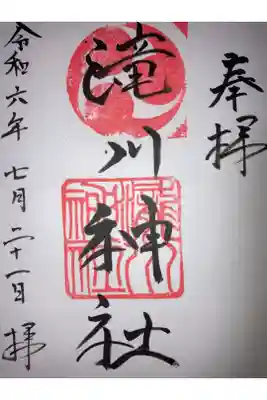 奉拝
滝川神社
令和六年七月二十一日拝